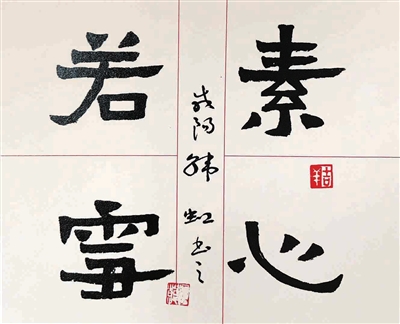 素心
若雪
咸阳韩虹书之
吉羊